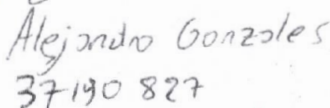 Alejandro Gonzales
37190 827